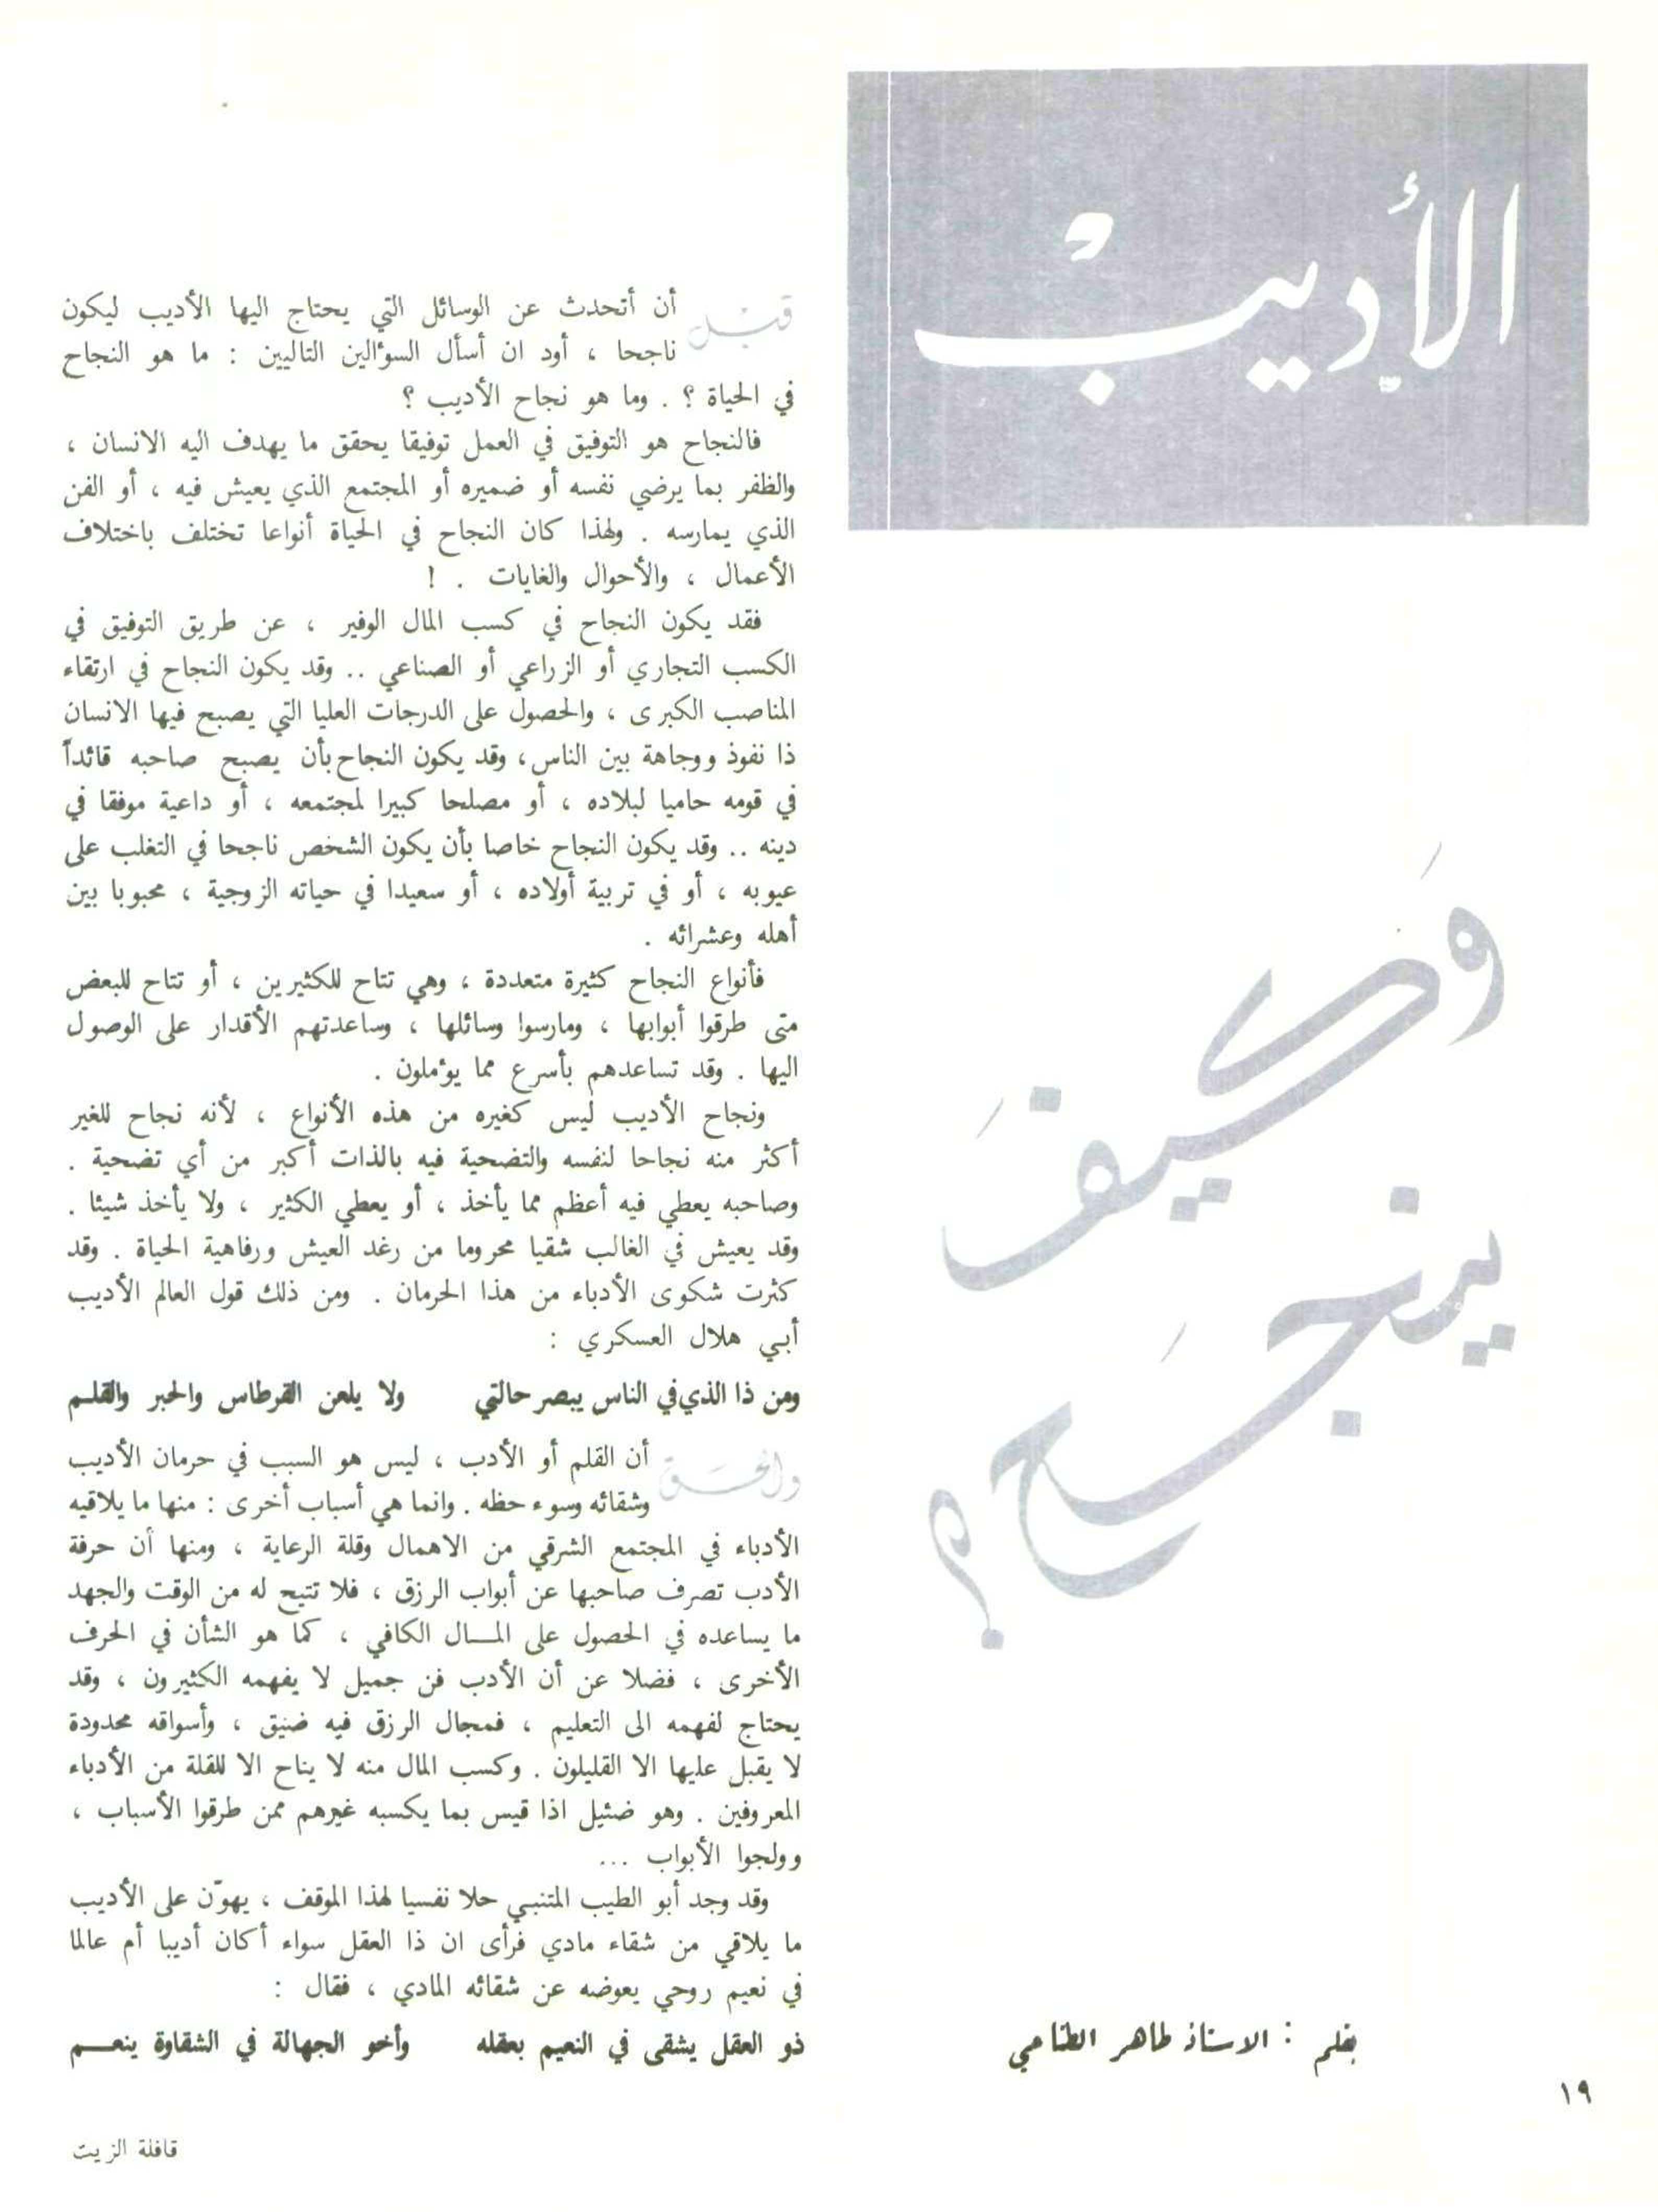 الأديب
وكيف
ينجح؟
بقلم : الاستاذ طاهر الطناحي
قبل أن أتحدث عن الوسائل التي يحتاج اليها الأديب ليكون
ناجحا ، أود ان أسأل السؤالين التاليين : ما هو النجاح
في الحياة ؟ . وما هو نجاح الأديب ؟
فالنجاح هو التوفيق في العمل توفيقا يحقق ما يهدف اليه الانسان ،
والظفر بما يرضي نفسه أو ضميره أو المجتمع الذي يعيش فيه ، أو الفن
الذي يمارسه . ولهذا كان النجاح في الحياة أنواعا تختلف باختلاف
الأعمال ، والأحوال والغايات . !
فقد يكون النجاح في كسب المال الوفير ، عن طريق التوفيق في
الكسب التجاري أو الزراعي أو الصناعي .. وقد يكون النجاح في ارتقاء
المناصب الكبرى ، والحصول على الدرجات العليا التي يصبح فيها الانسان
ذا نفوذ ووجاهة بين الناس، وقد يكون النجاح بأن يصبح صاحبه قائداً
في قومه حاميا لبلاده ، أو مصلحا كبيرا لمجتمعه ، أو داعية موفقا في
دينه .. وقد يكون النجاح خاصا بأن يكون الشخص ناجحا في التغلب على
عيوبه ، أو في تربية أولاده ، أو سعيدا في حياته الزوجية ، محبوبا بين
أهله وعشرائه .
فأنواع النجاح كثيرة متعددة ، وهي تتاح للكثيرين ، أو تتاح للبعض
متى طرقوا أبوابها ، ومارسوا وسائلها ، وساعدتهم الأقدار على الوصول
اليها . وقد تساعدهم بأسرع مما يؤملون .
ونجاح الأديب ليس كغيره من هذه الأنواع ، لأنه نجاح للغير
أكثر منه نجاحا لنفسه والتضحية فيه بالذات أكبر من أي تضحية .
وصاحبه يعطي فيه أعظم مما يأخذ ، أو يعطي الكثير ، ولا يأخذ شيئا .
وقد يعيش في الغالب شقيا محروما من رغد العيش ورفاهية الحياة . وقد
كثرت شكوى الأدباء من هذا الحرمان . ومن ذلك قول العالم الأديب
أبي هلال العسكري :
ومن ذا الذي في الناس يبصر حالتي ولا يلعن القرطاس والحبر والقلم
والحق أن القلم أو الأدب ، ليس هو السبب في حرمان الأديب
وشقائه وسوء حظه . وانما هي أسباب أخرى : منها ما يلاقيه
الأدباء في المجتمع الشرقي من الاهمال وقلة الرعاية ، ومنها أن حرفة
الأدب تصرف صاحبها عن أبواب الرزق ، فلا تتيح له من الوقت والجهد
ما يساعده في الحصول على المـال الكافي ، كما هو الشأن في الحرف
الأخرى ، فضلا عن أن الأدب فن جميل لا يفهمه الكثيرون ، وقد
يحتاج لفهمه الى التعليم ، فمجال الرزق فيه ضيق ، وأسواقه محدودة
لا يقبل عليها الا القليلون . وكسب المال منه لا يتاح الا للقلة من الأدباء
المعروفين . وهو ضئيل اذا قيس بما يكسبه غيرهم ممن طرقوا الأسباب ،
وولجوا الأبواب ...
وقد وجد أبو الطيب المتنبي حلا نفسيا لهذا الموقف ، يهوّن على الأديب
ما يلاقي من شقاء مادي فرأى ان ذا العقل سواء أكان أديبا أم عالما
في نعيم روحي يعوضه عن شقائه المادي ، فقال :
ذو العقل يشقى في النعيم بعقله وأخو الجهالة في الشقاوة ينعـم
١٩
قافلة الزيت